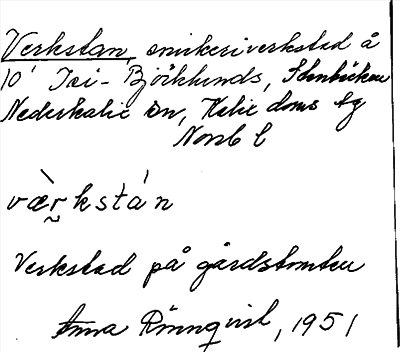 Verkstan, snickeriverkstad å
10' Isi-Björklunds, Stenbäcken
Nederkalix sn, Kalix doms tg
Norrb l
væ̀r̰kstá n
Verkstad på gårdstomten
Anna Rönnqvist, 1951